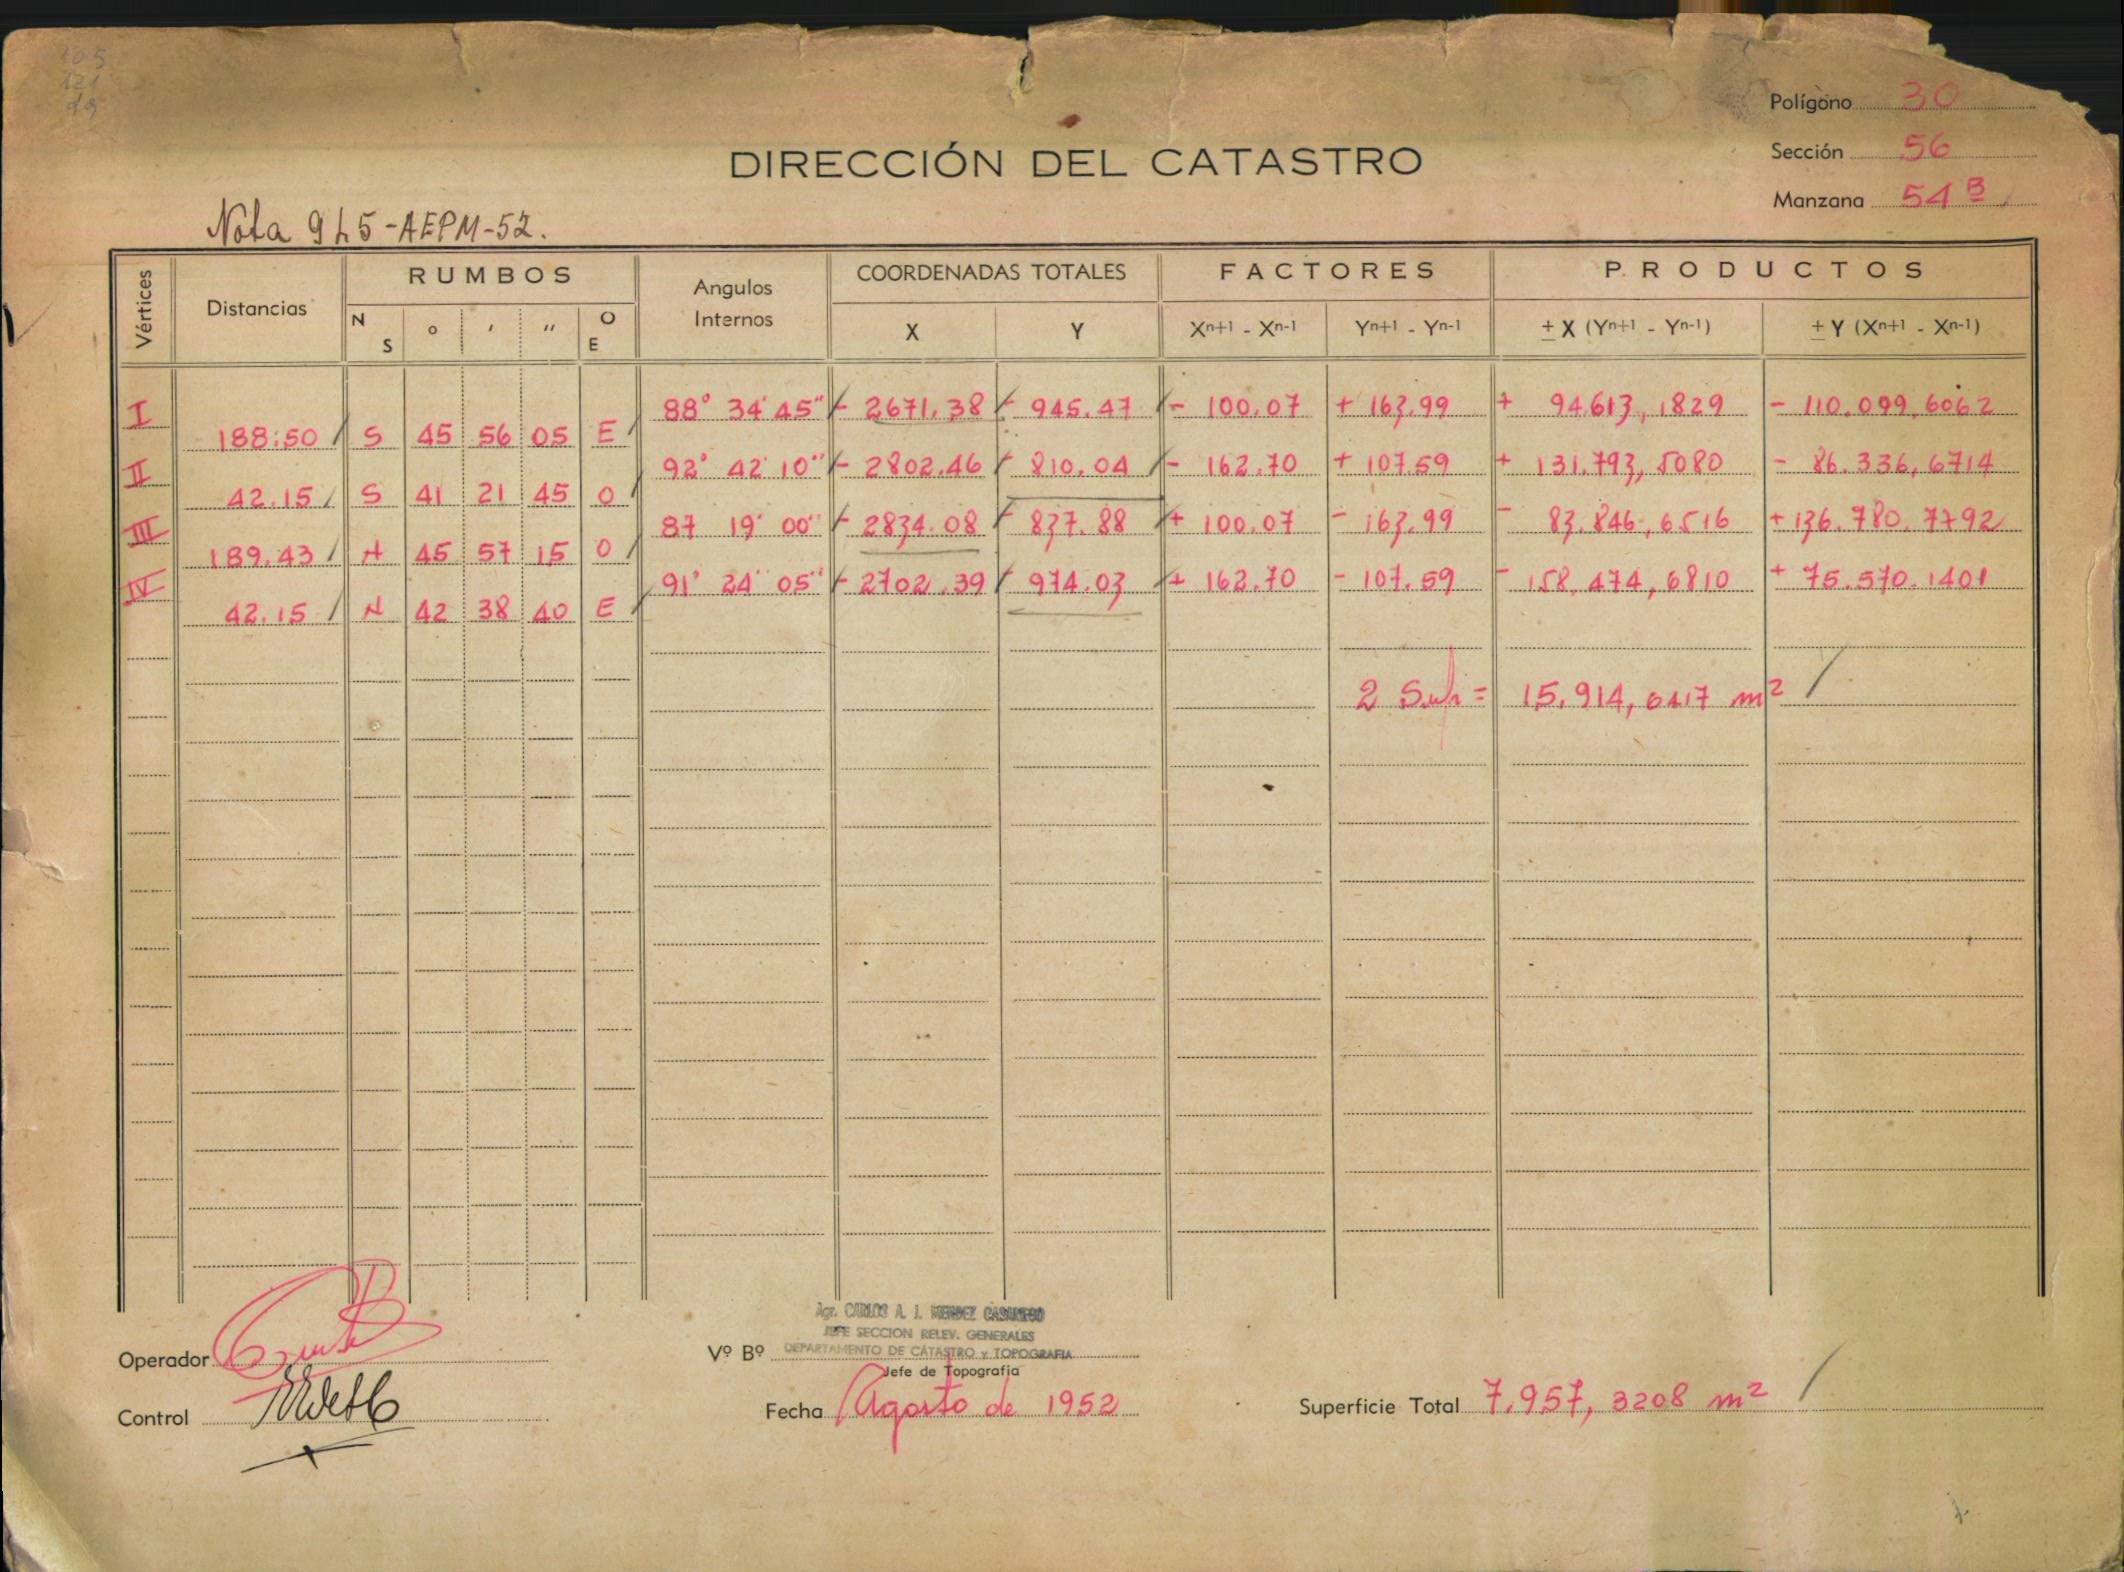 105
121
Polígono 30
Sección 56
Manzana 54 B
DIRECCIÓN DEL CATASTRO
Nota 945-AEPM-52.
Vértices Distancias RUMBOS Angulos Internos COORDENADAS TOTALES FACTORES PRODUCTOS
N S ° ' " O E X Y Xⁿ⁺¹ - Xⁿ⁻¹ Yⁿ⁺¹ - Yⁿ⁻¹ ± X (Yⁿ⁺¹ - Yⁿ⁻¹) ± Y (Xⁿ⁺¹ - Xⁿ⁻¹)
I 88° 34' 45" - 2671.38 - 945.47 - 100.07 + 163.99 + 94.613,1829 - 110.099,6062
188.50 S 45 56 05 E
II 92° 42' 10" - 2802.46 - 810.04 - 162.70 + 107.59 + 131.793,5080 - 86.336,6714
42.15 S 41 21 45 O
III 87 19' 00" - 2834.08 - 837.88 + 100.07 - 163.99 - 83.846,6516 + 136.780.7792
189.43 N 45 57 15 O
IV 91° 24' 05" - 2702.39 - 974.03 + 162.70 - 107.59 - 158.474,6810 + 75.570.1401
42.15 N 42 38 40 E
2 Sup = 15.914,6417 m²
Agr. CARLOS A. J. MENDEZ CASARIEGO
JEFE SECCION RELEV. GENERALES
Operador
Vº Bº DEPARTAMENTO DE CATASTRO y TOPOGRAFIA
Jefe de Topografía
Control
Fecha Agosto de 1952
Superficie Total 7.957,3208 m²